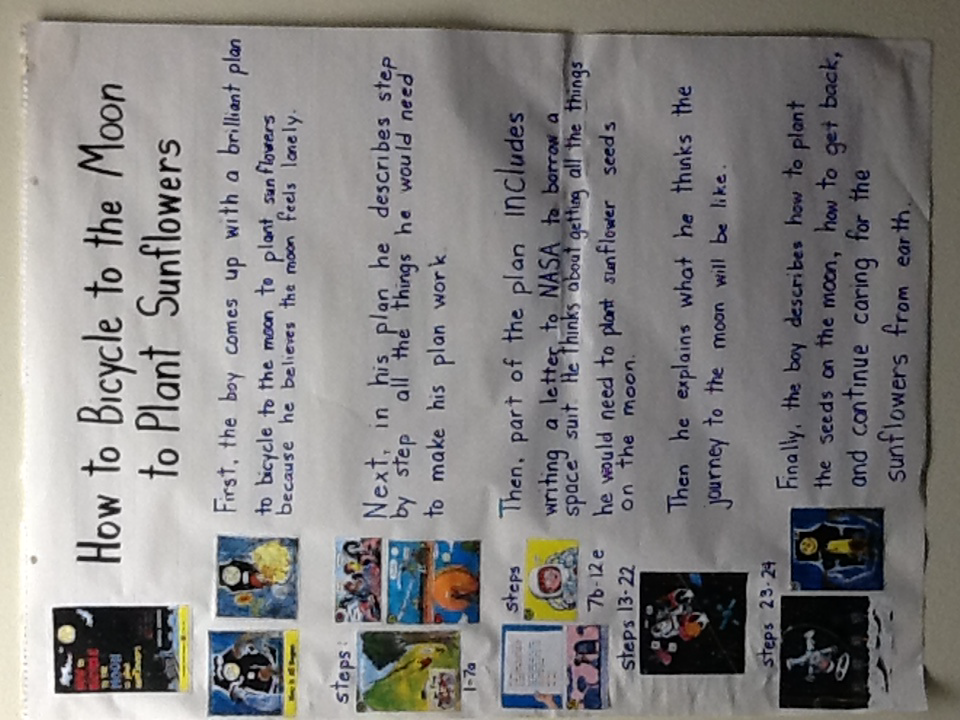 How to Bicycle to the Moon
to Plant Sunflowers
First, the boy comes up with a brilliant plan
to bicycle to the moon to plant sunflowers
because he believes the moon feels lonely.
steps:
1-7a
Next, in his plan he describes step
by step all the things he would need
to make his plan work.
steps
7b-12e
Then, part of the plan includes
writing a letter to NASA to borrow a
space suit. He thinks about getting all the things
he would need to plant sunflower seeds
on the moon.
steps 13-22
Then he explains what he thinks the
journey to the moon will be like.
steps 23-24
Finally, the boy describes how to plant
the seeds on the moon, how to get back,
and continue caring for the
sunflowers from earth.